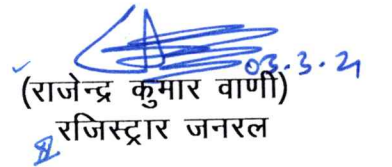 03.3.21
(राजेन्द्र कुमार वाणी)
रजिस्ट्रार जनरल